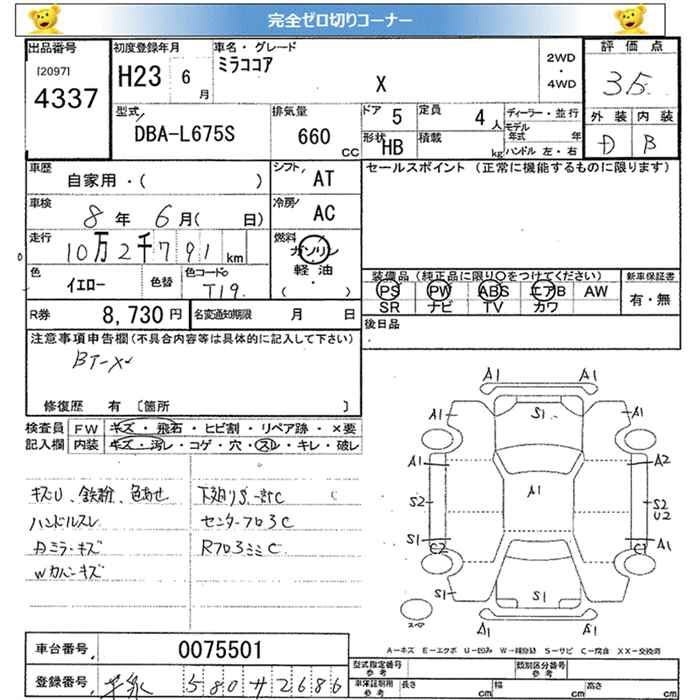 完全ゼロ切りコーナー
出品番号
[2097]
4337
初度登録年月
H23 6月
車名・グレード
ミラココア
X
2WD
・
4WD
評価点
3.5
外装 内装
D B
型式
DBA-L675S
排気量
660 CC
ドア 5
形状 HB
定員 4人
積載 kg
ディーラー・並行
モデル年式 年
ハンドル 左・右
車歴
自家用・( )
シフト AT
車検
8年 6月( 日)
冷房 AC
走行
10万2千791 km
燃料
ガソリン
軽油
( )
色
イエロー
色替
色コードNo
T19
R券 8,730円
名変通知期限 月 日
セールスポイント (正常に機能するものに限ります)
装備品 (純正品に限り〇をつけてください)
PS PW ABS エアB AW
SR ナビ TV カワ
新車保証書
有・無
後日品
注意事項申告欄(不具合内容等は具体的に記入して下さい)
BT-X
修復歴 有 [箇所 ]
検査員 FW キズ・飛石・ヒビ割・リペア跡・×要
記入欄 内装 キズ・汚レ・コゲ・穴・スレ・キレ・破レ
キズU、鉄粉、色あせ
ハンドルスレ
Dミラーキズ
Wカバーキズ
下廻りS.一部C
センターフロアC
RフロアミミC
C
A1 A1
A1 S1 A1
A1 A1 A2
S2 S2
U2
S1 A1
C2 C2
S1 S1 S1
A1 A1
スペア
A-キズ E-エクボ U-凹み W-補修跡 S-サビ C-腐食 XX-交換済
車台番号 0075501
登録番号 580 サ 2686
型式指定番号
参考
類別区分番号
参考
車検証記載
参考
長さ cm 幅 cm 高さ cm